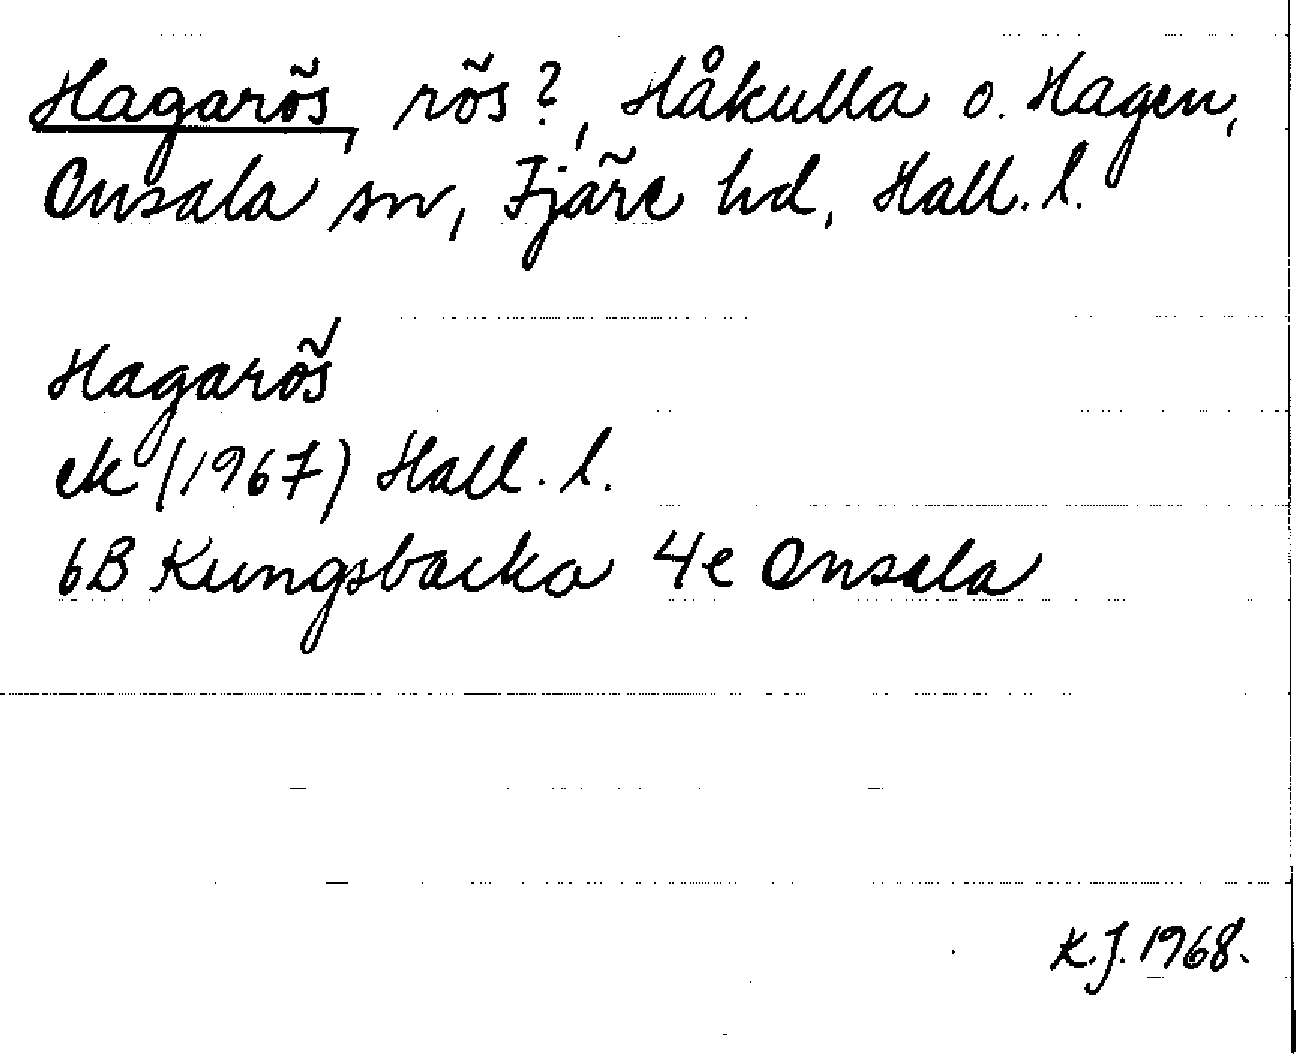 Hagarös, rös?, Håkulla o. Hagen,
Onsala sn, Fjäre hd, Hall. l.
Hagarös
ek (1967) Hall. l.
6B Kungsbacka 4e Onsala
K.J. 1968.